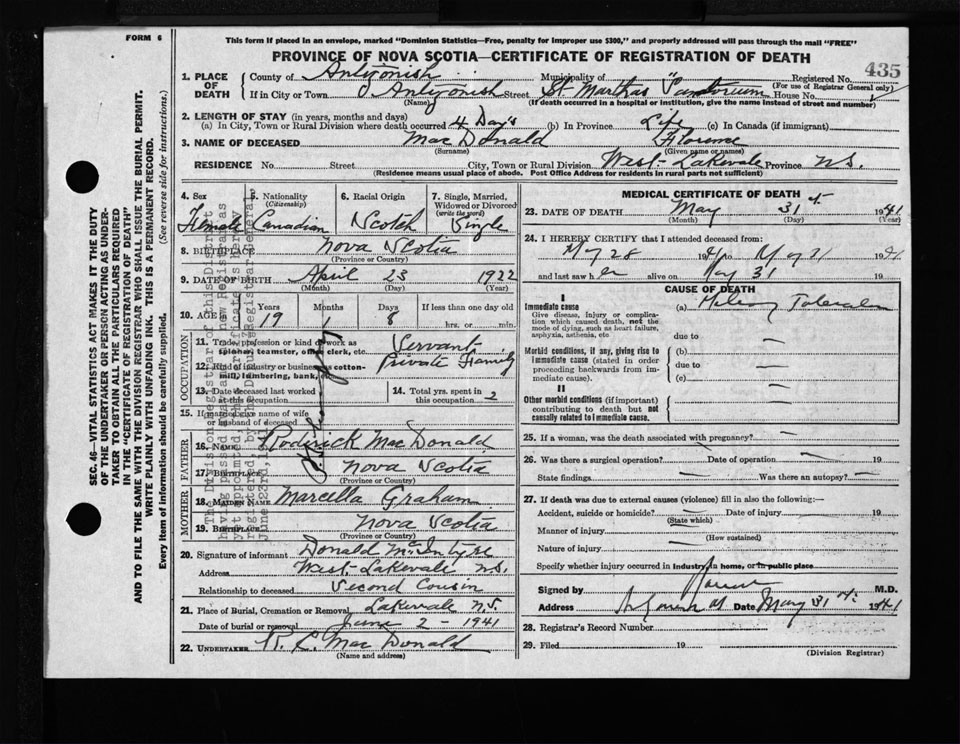 FORM 6
This form if placed in an envelope, marked "Dominion Statistics—Free, penalty for improper use $300," and properly addressed will pass through the mail "FREE"
PROVINCE OF NOVA SCOTIA—CERTIFICATE OF REGISTRATION OF DEATH
435
1. PLACE OF DEATH
County of Antigonish Municipality of Registered No.
(For use of Registrar General only)
If in City or Town Antigonish Street St. Marthas House No.
(Name) (If death occurred in a hospital or institution, give the name instead of street and number)
2. LENGTH OF STAY (in years, months and days)
(a) In City, Town or Rural Division where death occurred 4 Days (b) In Province Life (c) In Canada (if immigrant)
3. NAME OF DECEASED MacDonald Florence
(Surname) (Given name or names)
RESIDENCE No. Street City, Town or Rural Division West-Lakevale Province N.S.
(Residence means usual place of abode. Post Office Address for residents in rural parts not sufficient)
4. Sex Female
5. Nationality (Citizenship) Canadian
6. Racial Origin Scotch
7. Single, Married, Widowed or Divorced (write the word) Single
8. BIRTHPLACE Nova Scotia
(Province or Country)
9. DATE OF BIRTH April 23 1922
(Month) (Day) (Year)
10. AGE Years Months Days If less than one day old
19 1 8 hrs. or min.
OCCUPATION
11. Trade, profession or kind of work as spinner, teamster, office clerk, etc. Servant
12. Kind of industry or business as cotton-mill, lumbering, bank, Private Family
13. Date deceased last worked at this occupation
14. Total yrs. spent in this occupation 2
15. If married give name of wife or husband of deceased
FATHER
16. Name Roderick MacDonald
17. Birthplace Nova Scotia
(Province or Country)
MOTHER
18. Maiden Name Marcella Graham
19. Birthplace Nova Scotia
(Province or Country)
20. Signature of informant Donald McIntyre
Address West-Lakevale N.S.
Relationship to deceased Second Cousin
21. Place of Burial, Cremation or Removal Lakevale N.S.
Date of burial or removal June 2-1941
22. UNDERTAKER R. L. MacDonald
(Name and address)
MEDICAL CERTIFICATE OF DEATH
23. DATE OF DEATH May 31st 1941
(Month) (Day) (Year)
24. I HEREBY CERTIFY that I attended deceased from:
May 28 1941 to May 31 1941
and last saw her alive on May 31 19
CAUSE OF DEATH
I
Immediate cause
Give disease, injury or complication which caused death, not the mode of dying, such as heart failure, asphyxia, asthenia, etc.
(a)
due to —
Morbid conditions, if any, giving rise to immediate cause (stated in order proceeding backwards from immediate cause).
(b)
due to —
(c)
II
Other morbid conditions (if important) contributing to death but not causally related to immediate cause.
25. If a woman, was the death associated with pregnancy? —
26. Was there a surgical operation? — Date of operation — 19
State findings — Was there an autopsy? —
27. If death was due to external causes (violence) fill in also the following:—
Accident, suicide or homicide? — Date of injury 19
(State which)
Manner of injury
(How sustained)
Nature of injury —
Specify whether injury occurred in industry, in home, or in public place
Signed by M.D.
Address Date May 31st 1941
28. Registrar's Record Number
29. Filed 19
(Division Registrar)
SEC. 46—VITAL STATISTICS ACT MAKES IT THE DUTY
OF THE UNDERTAKER OR PERSON ACTING AS UNDER-
TAKER TO OBTAIN ALL THE PARTICULARS REQUIRED
IN THE "CERTIFICATE OF REGISTRATION OF DEATH"
AND TO FILE THE SAME WITH THE DIVISION REGISTRAR WHO SHALL ISSUE THE BURIAL PERMIT.
WRITE PLAINLY WITH UNFADING INK. THIS IS A PERMANENT RECORD.
Every item of information should be carefully supplied. (See reverse side for instructions.)